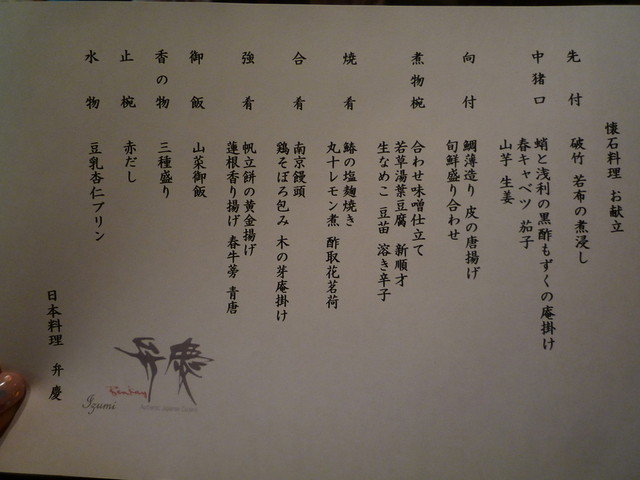 懐石料理 お献立
先付 破竹 若布の煮浸し
中猪口 蛸と浅利の黒酢もずくの庵掛け
春キャベツ 茄子
山芋 生姜
向付 鯛薄造り 皮の唐揚げ
旬鮮盛り合わせ
煮物椀 合わせ味噌仕立て
若草湯葉豆腐 新順才
生なめこ 豆苗 溶き辛子
焼肴 鰆の塩麹焼き
丸十レモン煮 酢取花茗荷
合肴 南京饅頭
鶏そぼろ包み 木の芽庵掛け
強肴 帆立餅の黄金揚げ
蓮根香り揚げ 春牛蒡 青唐
御飯 山菜御飯
香の物 三種盛り
止椀 赤だし
水物 豆乳杏仁プリン
日本料理 弁慶
弁慶
Benkay
Izumi